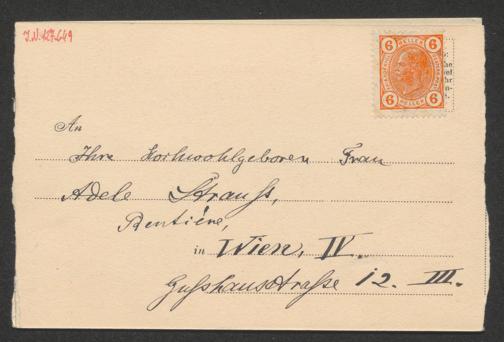 J.N. 127.649
6 HELLER 6
6 HELLER 6
An
Ihre Hochwohlgeboren Frau
Adele Strauß,
Rentière,
in Wien, IV.
Gußhausstraße 12. III.